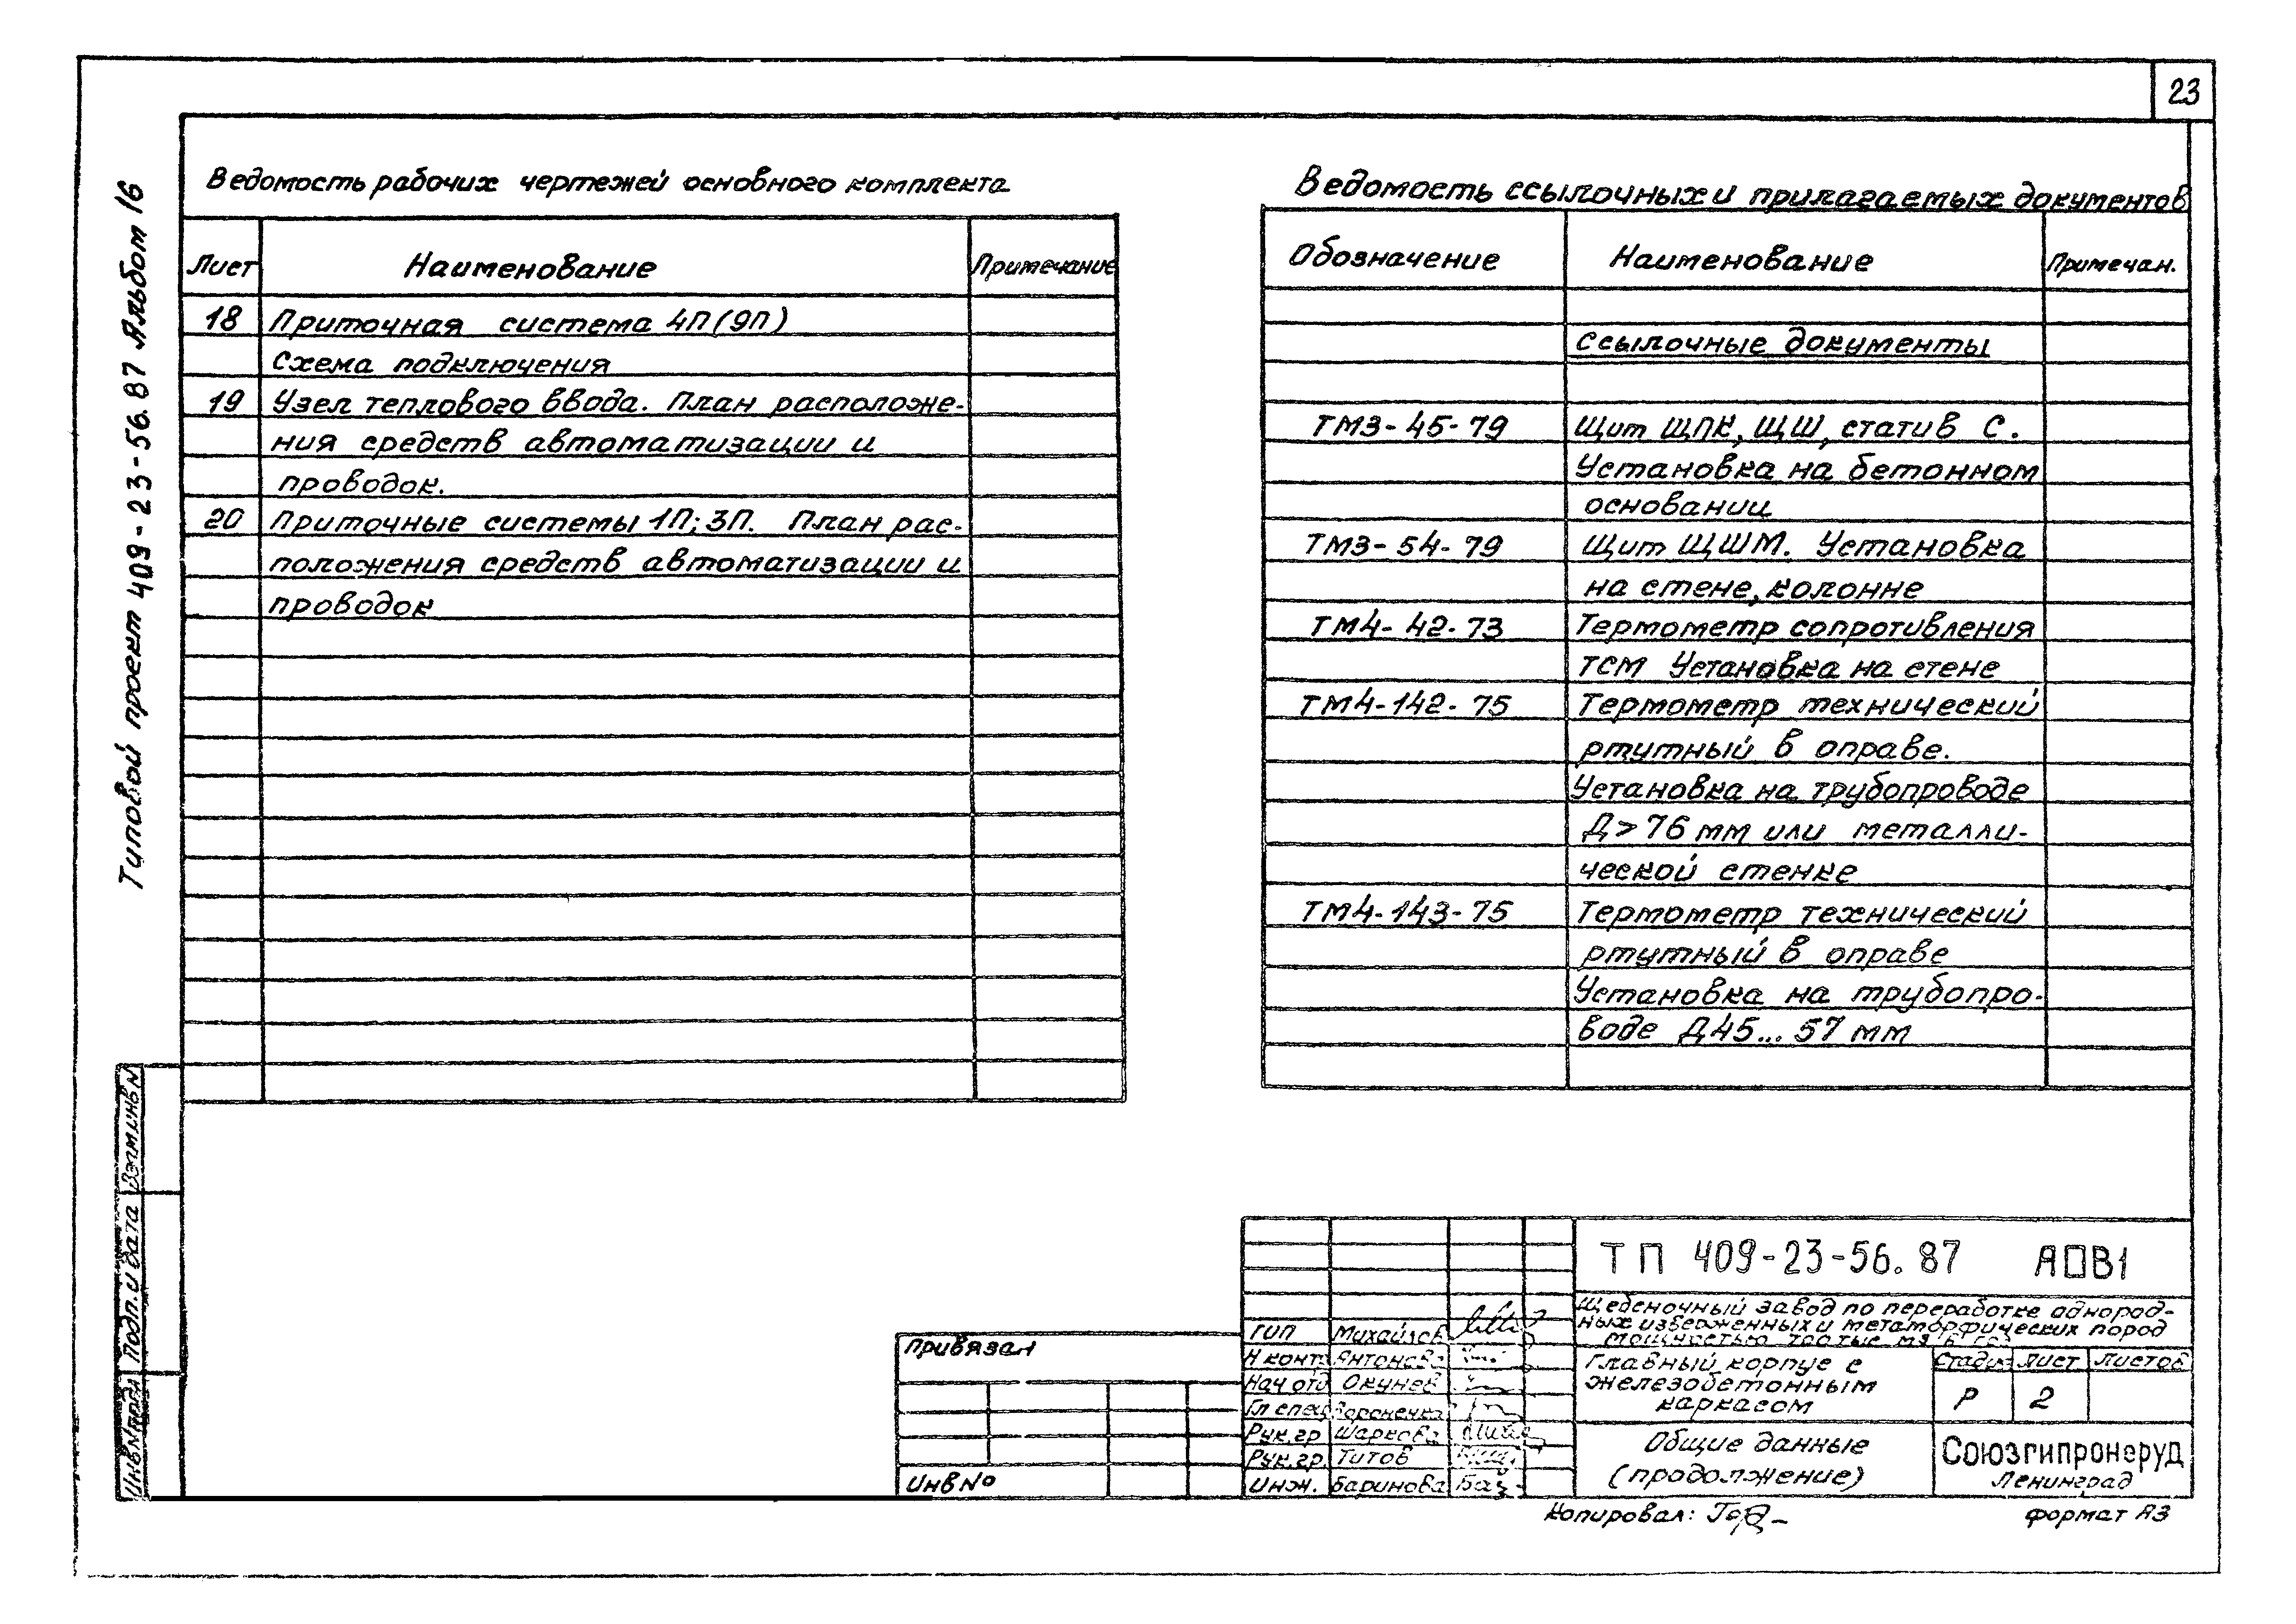 23
Типовой проект 409-23-56.87 Альбом 16
Ведомость рабочих чертежей основного комплекта
Лист Наименование Примечание
18 Приточная система 4П(9П)
Схема подключения
19 Узел теплового ввода. План расположе-
ния средств автоматизации и
проводок.
20 Приточные системы 1П; 3П. План рас-
положения средств автоматизации и
проводок
Ведомость ссылочных и прилагаемых документов
Обозначение Наименование Примечан.
Ссылочные документы
ТМ3-45-79 Щит ЩПК, ЩШ, статив С.
Установка на бетонном
основании
ТМ3-54-79 Щит ЩШМ. Установка
на стене, колонне
ТМ4-42-73 Термометр сопротивления
ТСМ Установка на стене
ТМ4-142-75 Термометр технический
ртутный в оправе.
Установка на трубопроводе
Д>76 мм или металли-
ческой стенке
ТМ4-143-75 Термометр технический
ртутный в оправе
Установка на трубопро-
воде Д45...57 мм
Взам инв N
Подп. и дата
Инв N подл
Привязан
Инв №
ГИП Михайлов
Н контр Антонова
Нач отд Окунев
Гл спец Вороненко
Рук. гр Шаркова
Рук. гр. Титов
Инж. Баринова
ТП 409-23-56.87 АОВ1
Щебеночный завод по переработке однород-
ных изверженных и метаморфических пород
мощностью
Главный корпус с
железобетонным
каркасом
Стадия Лист Листов
Р 2
Общие данные
(продолжение)
Союзгипронеруд
Ленинград
Копировал:
формат А3